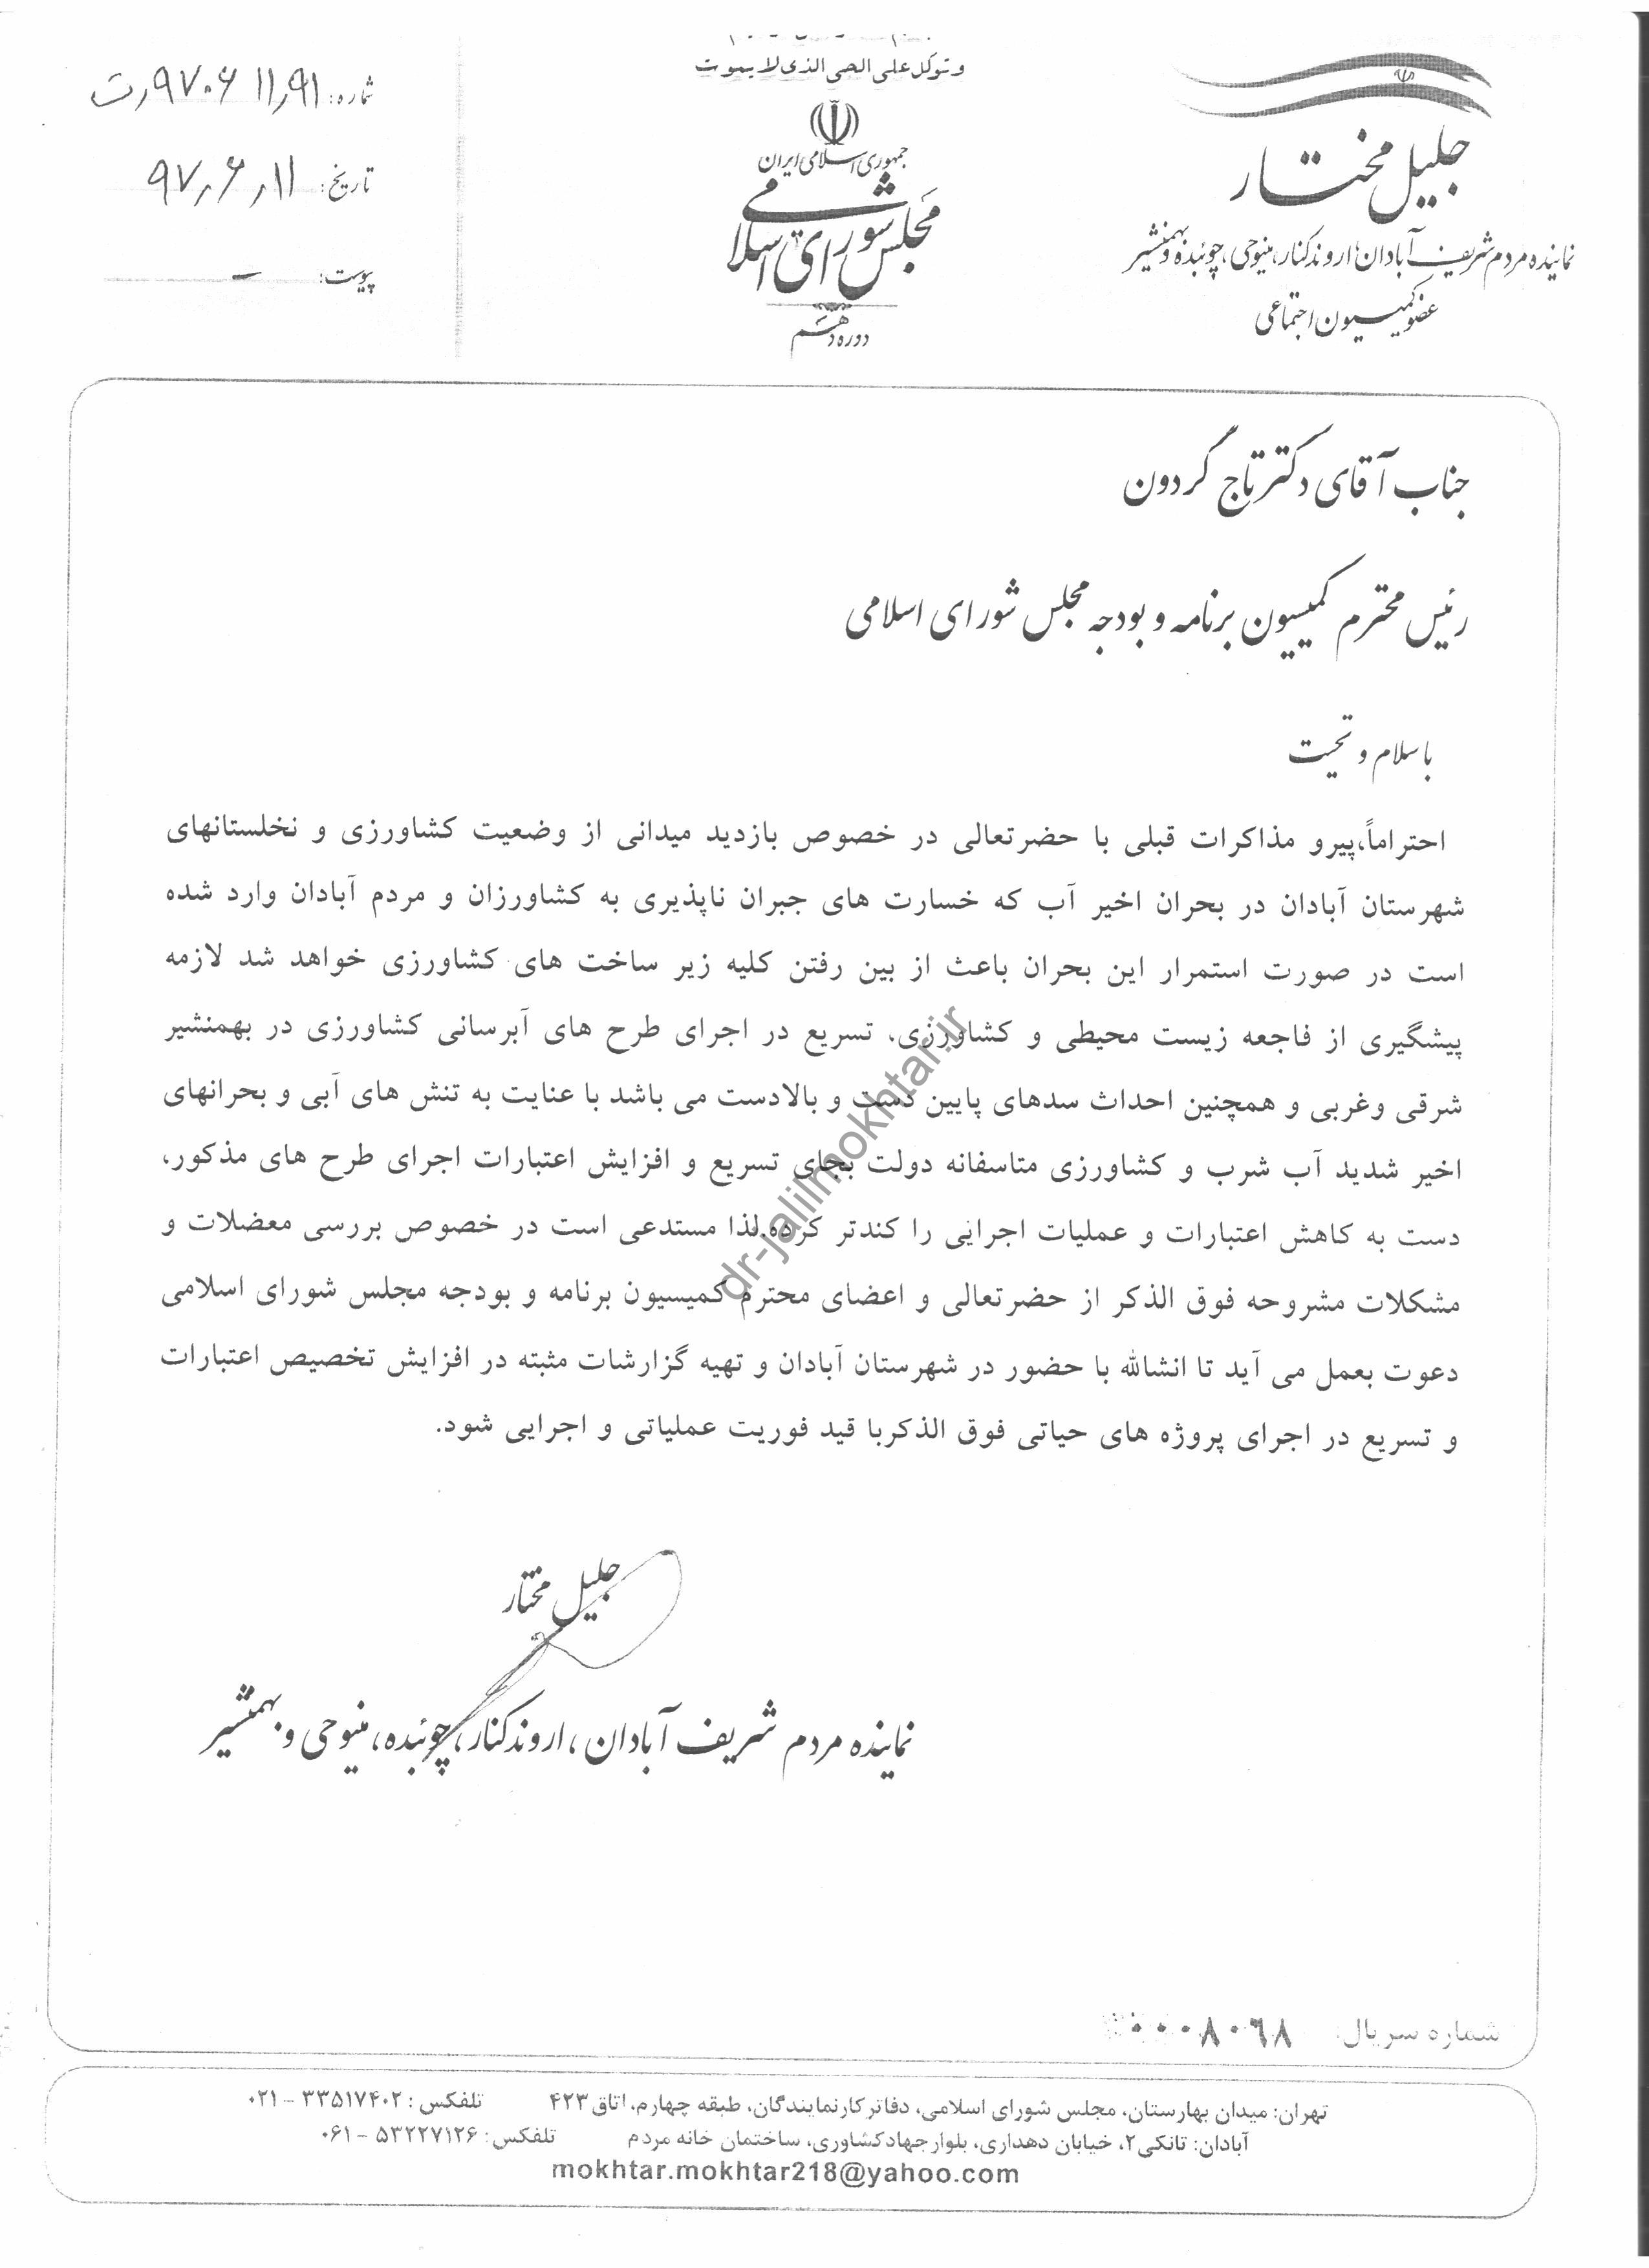 وتوکل علی الحی الذی لا یموت
جمهوری اسلامی ایران
مجلس شورای اسلامی
دوره دهم
جلیل مختار
نماینده مردم شریف آبادان، اروندکنار، مینوحی، چوئبده و بهمنشیر
عضو کمیسیون اجتماعی
شماره: ۹۷۰۶۱۱٫۹۱٫ت
تاریخ: ۹۷٫۶٫۱۱
پیوست: –
جناب آقای دکتر تاج گردون
رئیس محترم کمیسیون برنامه و بودجه مجلس شورای اسلامی
با سلام و تحیت
احتراماً،پیرو مذاکرات قبلی با حضرتعالی در خصوص بازدید میدانی از وضعیت کشاورزی و نخلستانهای
شهرستان آبادان در بحران اخیر آب که خسارت های جبران ناپذیری به کشاورزان و مردم آبادان وارد شده
است در صورت استمرار این بحران باعث از بین رفتن کلیه زیر ساخت های کشاورزی خواهد شد لازمه
پیشگیری از فاجعه زیست محیطی و کشاورزی، تسریع در اجرای طرح های آبرسانی کشاورزی در بهمنشیر
شرقی وغربی و همچنین احداث سدهای پایین دست و بالادست می باشد با عنایت به تنش های آبی و بحرانهای
اخیر شدید آب شرب و کشاورزی متاسفانه دولت بجای تسریع و افزایش اعتبارات اجرای طرح های مذکور،
دست به کاهش اعتبارات و عملیات اجرایی را کندتر کرده.لذا مستدعی است در خصوص بررسی معضلات و
مشکلات مشروحه فوق الذکر از حضرتعالی و اعضای محترم کمیسیون برنامه و بودجه مجلس شورای اسلامی
دعوت بعمل می آید تا انشالله با حضور در شهرستان آبادان و تهیه گزارشات مثبته در افزایش تخصیص اعتبارات
و تسریع در اجرای پروژه های حیاتی فوق الذکربا قید فوریت عملیاتی و اجرایی شود.
dr-jalilmokhtar.ir
جلیل مختار
نماینده مردم شریف آبادان، اروندکنار، چوئبده، مینوحی و بهمنشیر
شماره سریال: ۰۰۰۸۰۶۸
تهران: میدان بهارستان، مجلس شورای اسلامی، دفاتر کارنمایندگان، طبقه چهارم، اتاق ۴۲۳ تلفکس : ۳۳۵۱۷۴۰۲ – ۰۲۱
آبادان: تانکی۲، خیابان دهداری، بلوار جهادکشاوری، ساختمان خانه مردم تلفکس: ۵۳۲۲۷۱۲۶ – ۰۶۱
mokhtar.mokhtar218@yahoo.com